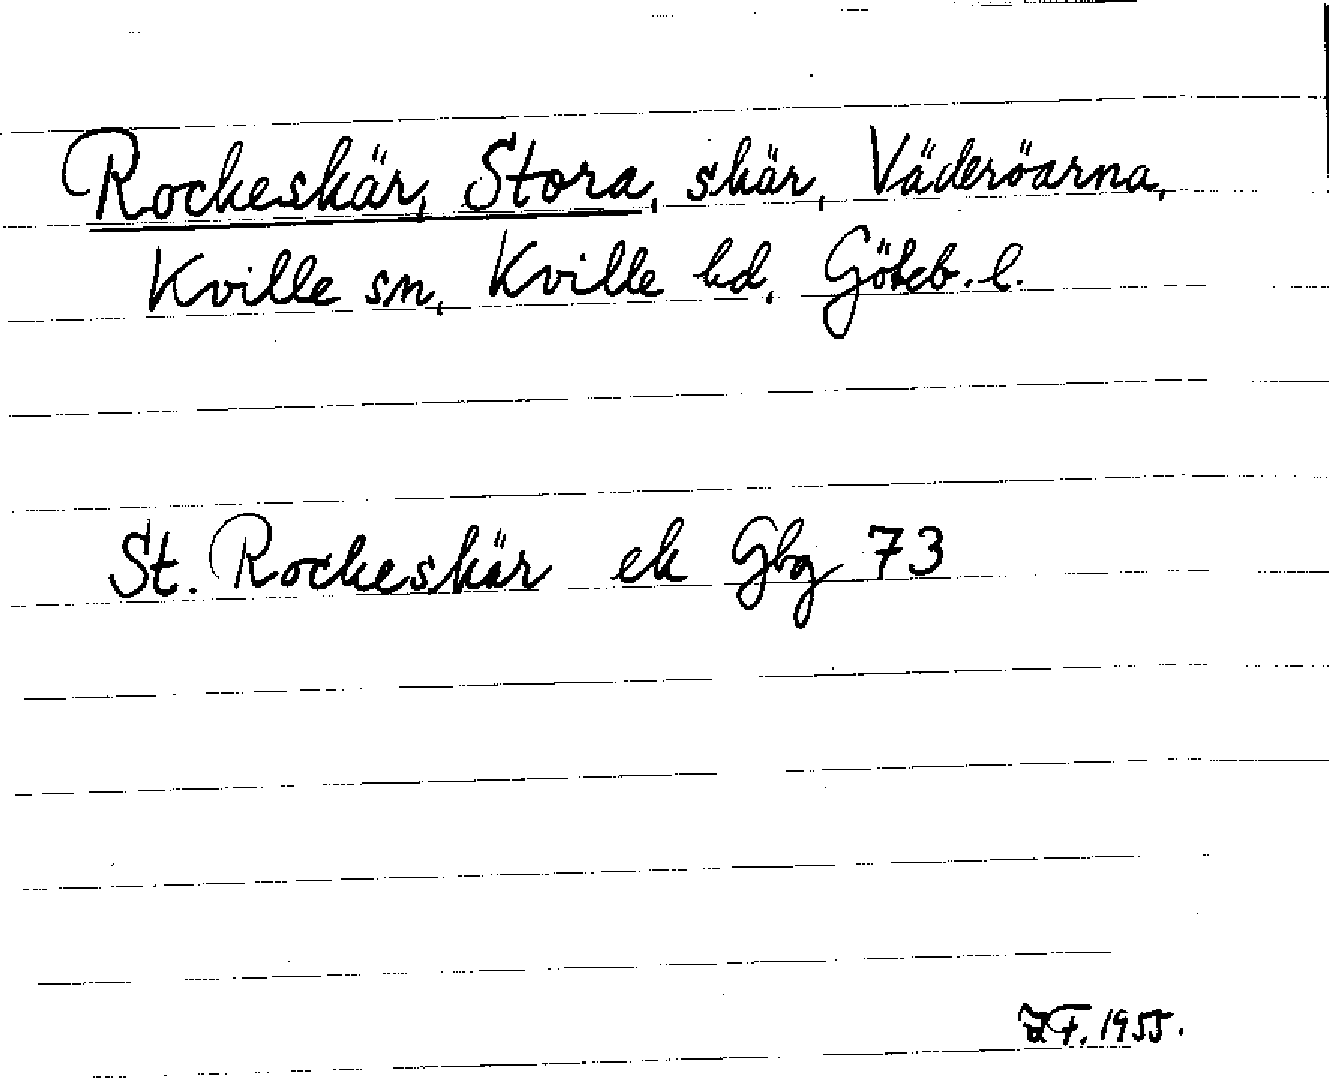 Rockeskär, Stora, skär, Väderöarna,
Kville sn, Kville hd, Göteb. l.
St. Rockeskär ek Gbg 73
F. 1955.